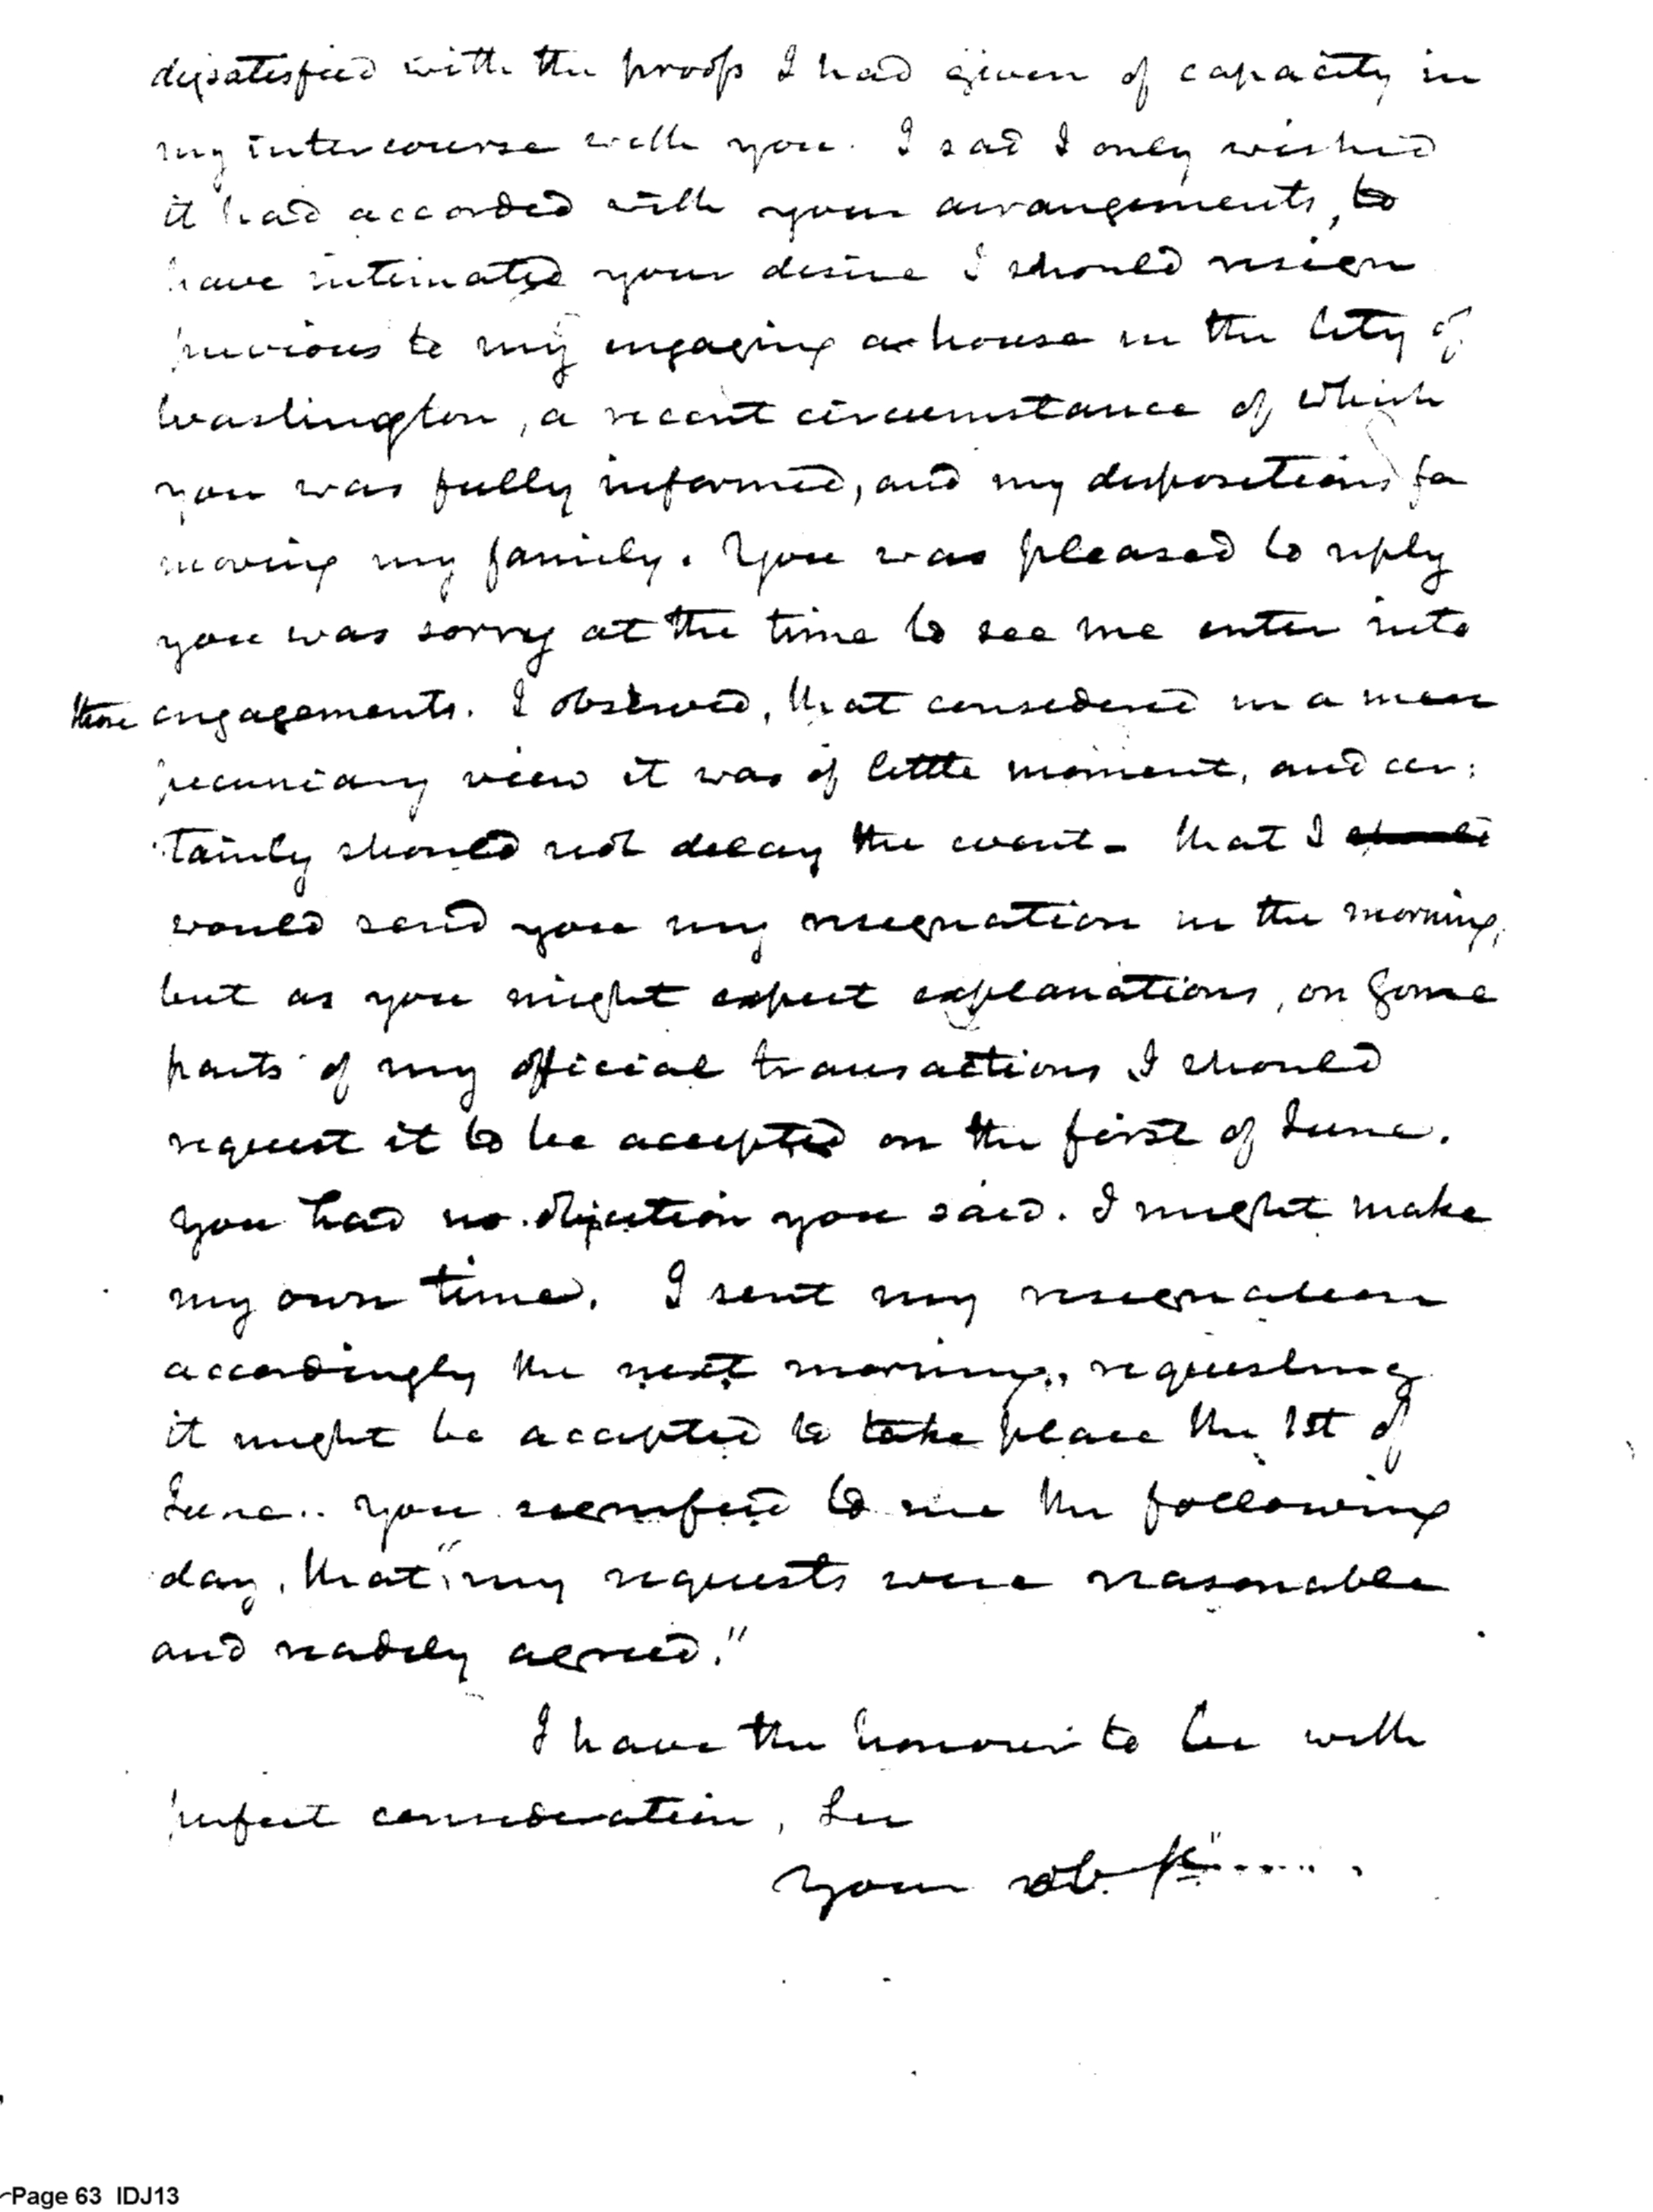 dissatisfied with the proofs I had given of capacity in
my intercourse with you. I said I only wished
it had accorded with your arrangements, to
have intimated your desire I should resign
previous to my engaging a house in the City of
Washington, a recent circumstance of which
you was fully informed, and my dispositions for
moving my family. You was pleased to reply
you was sorry at the time to see me enter into
those engagements. I observed, that considered in a mere
pecuniary view it was of little moment, and cer:
tainly should not delay the event – that I should
would send you my resignation in the morning,
but as you might expect explanations, on some
parts of my official transactions I should
request it to be accepted on the first of June.
You had no objection you said. I might make
my own time. I sent my resignation
accordingly the next morning, requesting
it might be accepted to take place the 1st of
June.. You signified to me the following
day, that "my requests were reasonable
and readily agreed."
I have the honour to be with
perfect consideration, Sir
Your ob.
Page 63 IDJ13